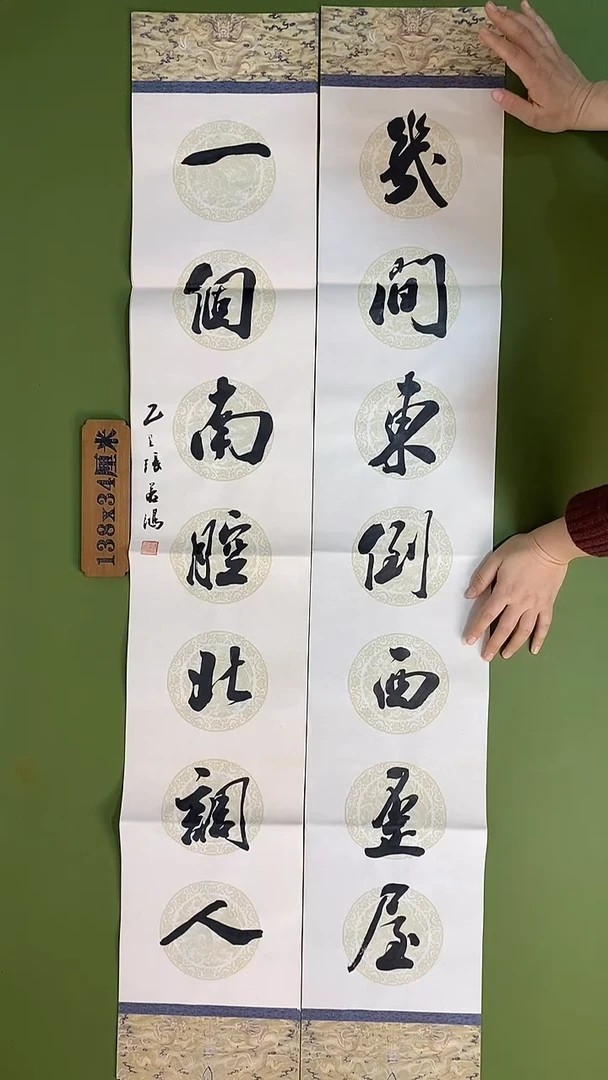 幾間東倒西歪屋
一個南腔北調人
乙巳張若鴻
138x34厘米